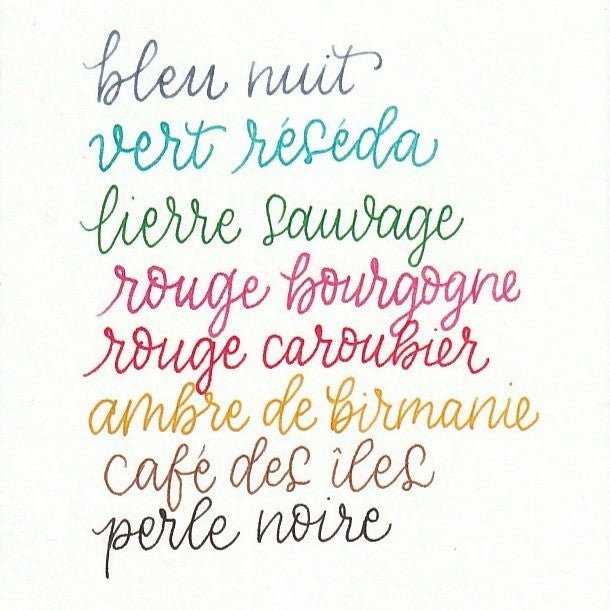 bleu nuit
vert réséda
lierre sauvage
rouge bourgogne
rouge caroubier
ambre de birmanie
café des îles
perle noire